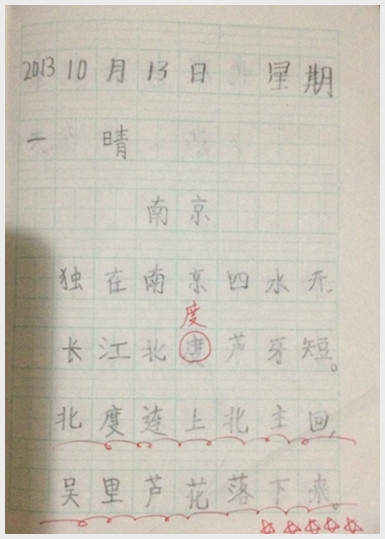 2013 10月13日 星期
二 晴
南京
独在南京四水开,
度
长江北度芦牙短。
北度连上北主回,
吴里芦花落下来。